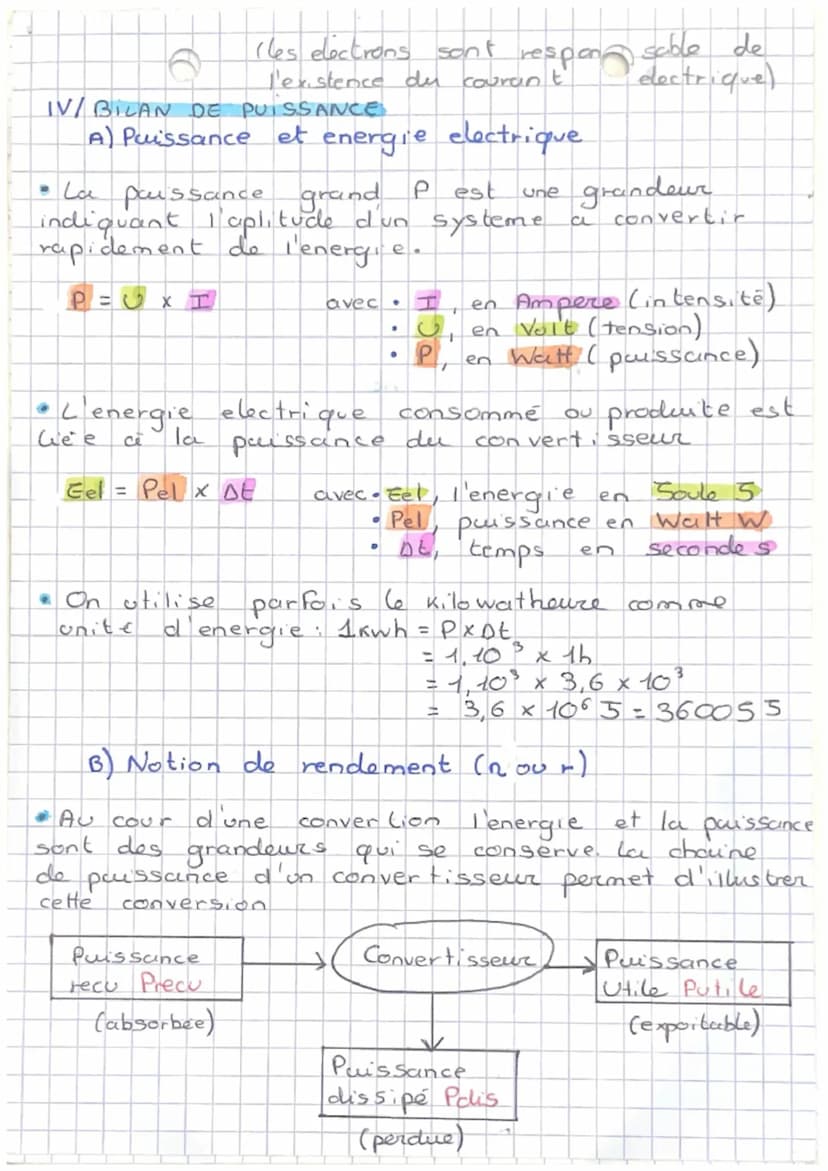 (les electrons sont respon sable de
l'existence du courant electrique)
IV/ BILAN DE PUISSANCE
A) Puissance et energie electrique
• La puissance grand P est une grandeur
indiquant l'aplitude d'un systeme a convertir
rapidement de l'energie.
P = U x I avec • I, en Ampere (intensité)
• U, en Volt (tension)
• P, en Watt (puissance)
• L'energie electrique consommé ou produite est
liée à la puissance du convertisseur
Eel = Pel x Δt avec • Eel, l'energie en Joule J
• Pel, puissance en Watt W
• Δt, temps en seconde s
• On utilise parfois le Kilowatheure comme
unite d'energie : 1kwh = P x Δt
= 1,10³ x 1h
= 1,10³ x 3,6 x 10³
= 3,6 x 10⁶ J = 36005 J
B) Notion de rendement (n ou r)
• Au cour d'une convertion l'energie et la puissance
sont des grandeurs qui se conserve. La chaine
de puissance d'un convertisseur permet d'illustrer
cette conversion
Puissance
recu Precu
(absorbée)
Convertisseur
Puissance
Utile Putile
(exploitable)
Puissance
dissipé Pdis
(perdue)